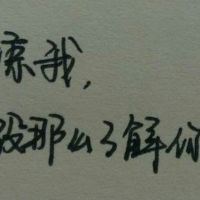 谅我,
没那么了解你